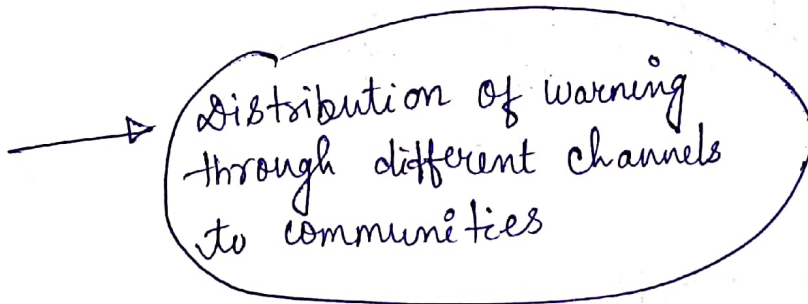 Distribution of warning
through different channels
to communities